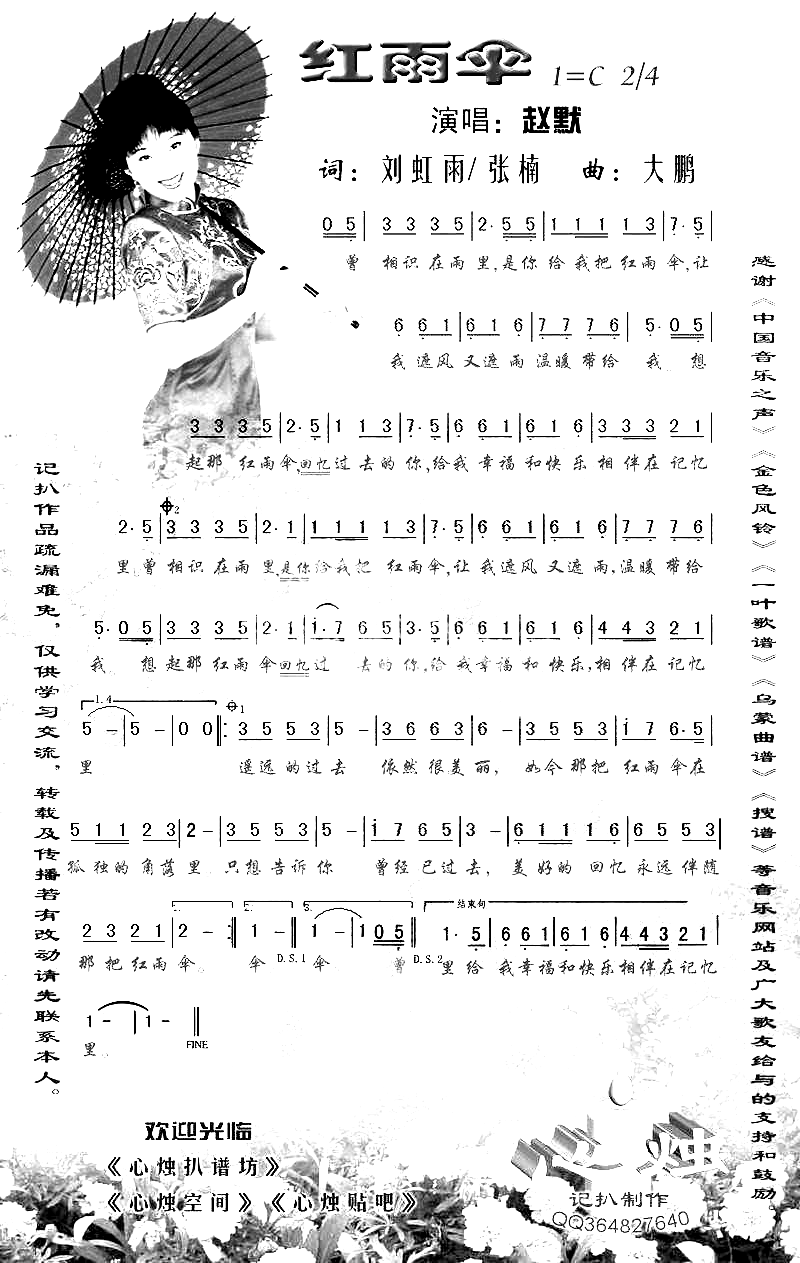 红雨伞 1=C 2/4
演唱：赵默
词：刘虹雨/张楠 曲：大鹏
0 5 | 3 3 3 5 | 2· 5 5 | 1 1 1 1 3 | 7· 5 |
曾 相识在雨里,是你给我把红雨伞,让
6 6 1 | 6 1 6 | 7 7 7 6 | 5· 0 5 |
我遮风又遮雨温暖带给 我 想
3 3 3 5 | 2· 5 | 1 1 3 | 7· 5 | 6 6 1 | 6 1 6 | 3 3 3 2 1 |
起那红雨伞,回忆过去的你,给我幸福和快乐相伴在记忆
2· 5 | 3 3 3 5 | 2· 1 | 1 1 1 1 3 | 7· 5 | 6 6 1 | 6 1 6 | 7 7 7 6 |
里曾相识在雨里,是你给我把 红雨伞,让我遮风又遮雨,温暖带给
5· 0 5 | 3 3 3 5 | 2· 1 | 1· 7 6 5 | 3· 5 | 6 6 1 | 6 1 6 | 4 4 3 2 1 |
我 想起那红雨伞回忆过 去的你,给我幸福和快乐,相伴在记忆
1.4
5 - | 5 - | 0 0 :| 1 3 5 5 3 | 5 - | 6 4 6 6 | 3 - | 3 5 5 3 | 1 7 | 6· 5 |
里 遥远的过去 依然很美丽, 如今那把红雨伞在
5 1 1 2 3 | 2 - | 3 5 5 3 | 5 - | 1 7 6 5 | 3 - | 6 1 1 1 6 | 5 6 5 3 |
孤独的角落里 只想告诉你 曾经已过去,美好的 回忆永远伴随
结束句
2 3 2 1 | 2 - :| 1 - | 1 - | 1 0 5 | 1· 5 | 6 6 1 | 6 1 6 | 4 4 3 2 1 |
那把红雨伞。 伞 D.S.1 伞 曾 D.S.2 里给我幸福和快乐相伴在记忆
1 - | 1 - ‖
里。 FINE
记扒作品疏漏难免，仅供学习交流，转载及传播若有改动请先联系本人。
感谢《中国音乐之声》《金色风铃》《一叶歌谱》《乌蒙曲谱》《搜谱》等音乐网站及广大歌友给与的支持和鼓励。
欢迎光临
《心烛扒谱坊》
《心烛空间》《心烛贴吧》
心烛
记扒制作
QQ364827640